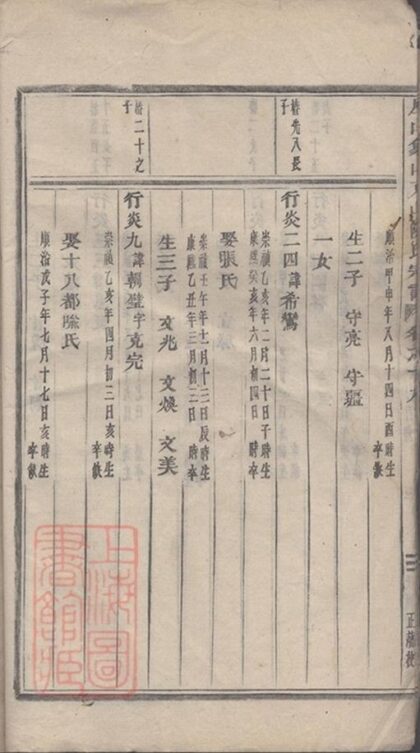 順治甲申年八月十四日酉時生
卒缺
生二子 守亮 守疆
一女
先入長
子
行炎二四諱希鸞
崇禎乙亥年二月二十日子時生
康熙癸亥年六月初四日 時卒
娶張氏
崇禎壬午年十一月十三日辰時生
康熙乙丑年三月初三日 時卒
生三子 文兆 文煥 文美
二十之
子
行炎九諱朝璧字克完
崇禎乙亥年四月初三日亥時生
卒缺
娶十八都陳氏
順治戊子年七月十七日亥時生
卒缺
上海圖
書館藏